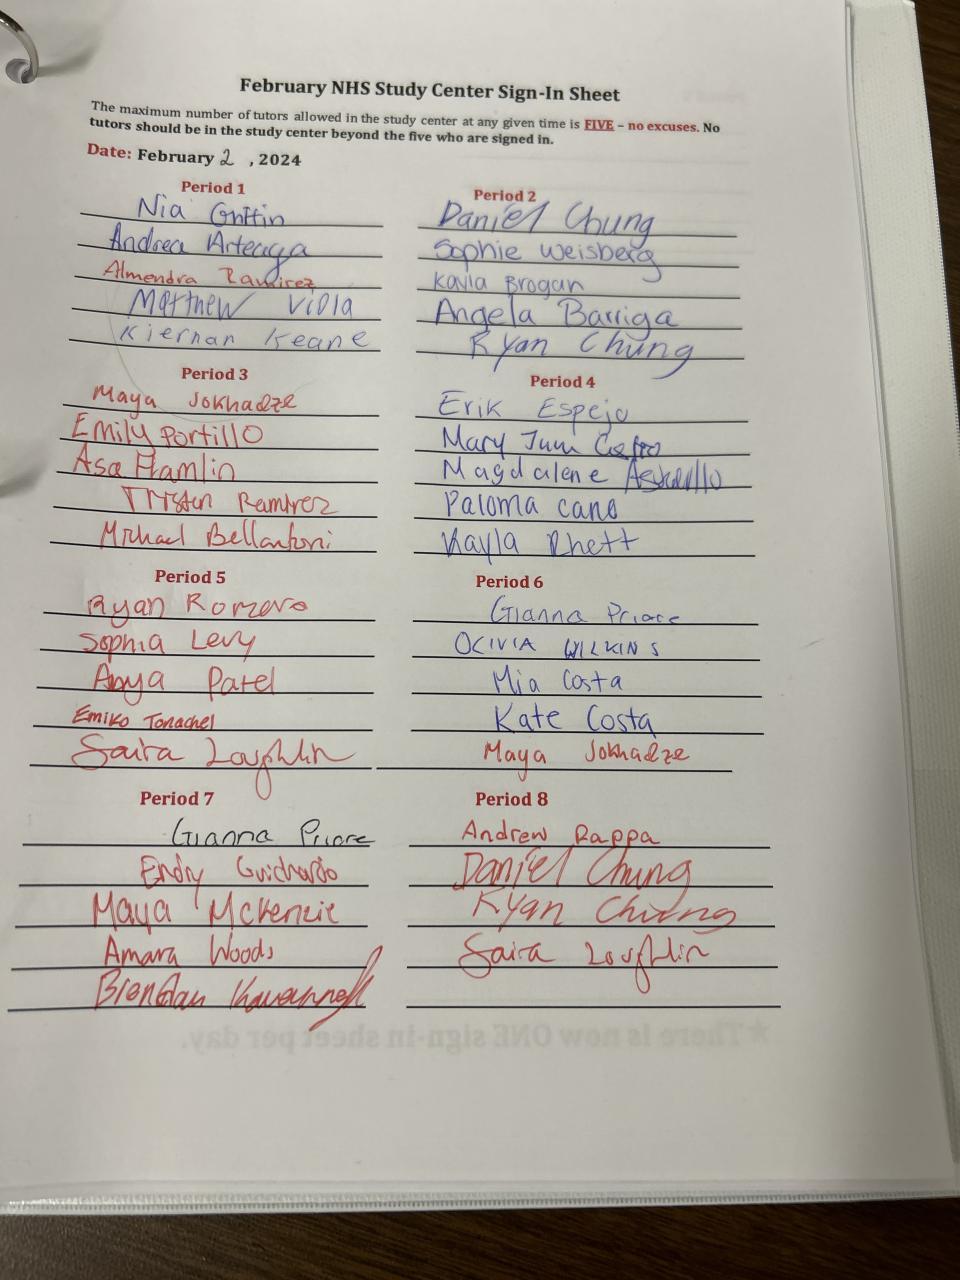 February NHS Study Center Sign-In Sheet
The maximum number of tutors allowed in the study center at any given time is FIVE – no excuses. No
tutors should be in the study center beyond the five who are signed in.
Date: February 2 , 2024
Period 1
Nia Griffin
Andrea Arteaga
Almendra Ramirez
Matthew Viola
Kiernan Keane
Period 2
Daniel Chung
Sophie Weisberg
Kayla Brogan
Angela Barriga
Ryan Chung
Period 3
Maya Jokhadze
Emily Portillo
Asa Hamlin
Tristan Ramirez
Michael Bellantoni
Period 4
Erik Espejo
Mary Castro
Magdalene
Paloma Cano
Kayla Rhett
Period 5
Ryan Romero
Sophia Levy
Anya Patel
Emiko Tonachel
Saira Loughlin
Period 6
Gianna Priore
OLIVIA WILKINS
Mia Costa
Kate Costa
Maya Jokhadze
Period 7
Gianna Priore
Endry Guichardo
Maya McKenzie
Amara Woods
Brendan
Period 8
Andrew Rappa
Daniel Chung
Ryan Chung
Saira Loughlin
★There is now ONE sign-in sheet per day.